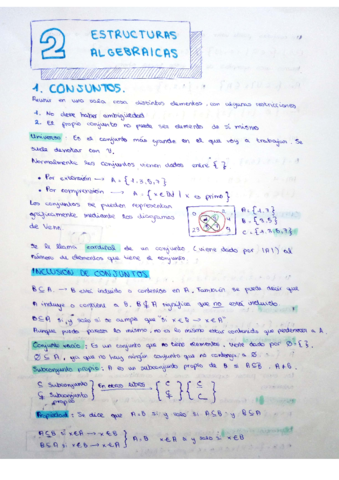 2 ESTRUCTURAS
ALGEBRAICAS
1. CONJUNTOS.
Reunir en una sola cosa distintos elementos, con algunas restricciones
1. No debe haber ambigüedad
2. El propio conjunto no puede ser elemento de sí mismo
Universo: Es el conjunto más grande en el que voy a trabajar. Se
suele denotar con
Normalmente los conjuntos vienen dados entre { }
• Por extensión → A = {1,3,5,7}
• Por comprensión → A = { x ∈ ℕ | x es primo }
Los conjuntos se pueden representar
gráficamente mediante los diagramas
de Venn
A = {1,7}
C = {1,3,5,7}
Se le llama cardinal de un conjunto (viene dado por |A|) al
número de elementos que tiene el conjunto.
INCLUSIÓN DE CONJUNTOS
B ⊆ A → B está incluido o contenido en A, también se puede decir que
A incluye o contiene a B, B ⊈ A significa que no está incluido
B ⊆ A si y solo si se cumple que "si x ∈ B → x ∈ A"
Aunque pueda parecer lo mismo, no es lo mismo estar contenido que pertenecer a A.
Conjunto vacío: Es un conjunto que no tiene elementos, viene dado por ∅ = { },
∅ ⊆ A, ya que no hay ningún conjunto que no contenga a ∅.
Subconjunto propio: A es un subconjunto propio de B A ⊆ B A ≠ B.
⊆ Subconjunto
⊊ Subconjunto propio
En otros libros
Propiedad: Se dice que A = B si y solo si A ⊆ B y B ⊆ A
A ⊆ B si x ∈ A → x ∈ B
B ⊆ A si x ∈ B → x ∈ A
A = B x ∈ A si y solo si x ∈ B